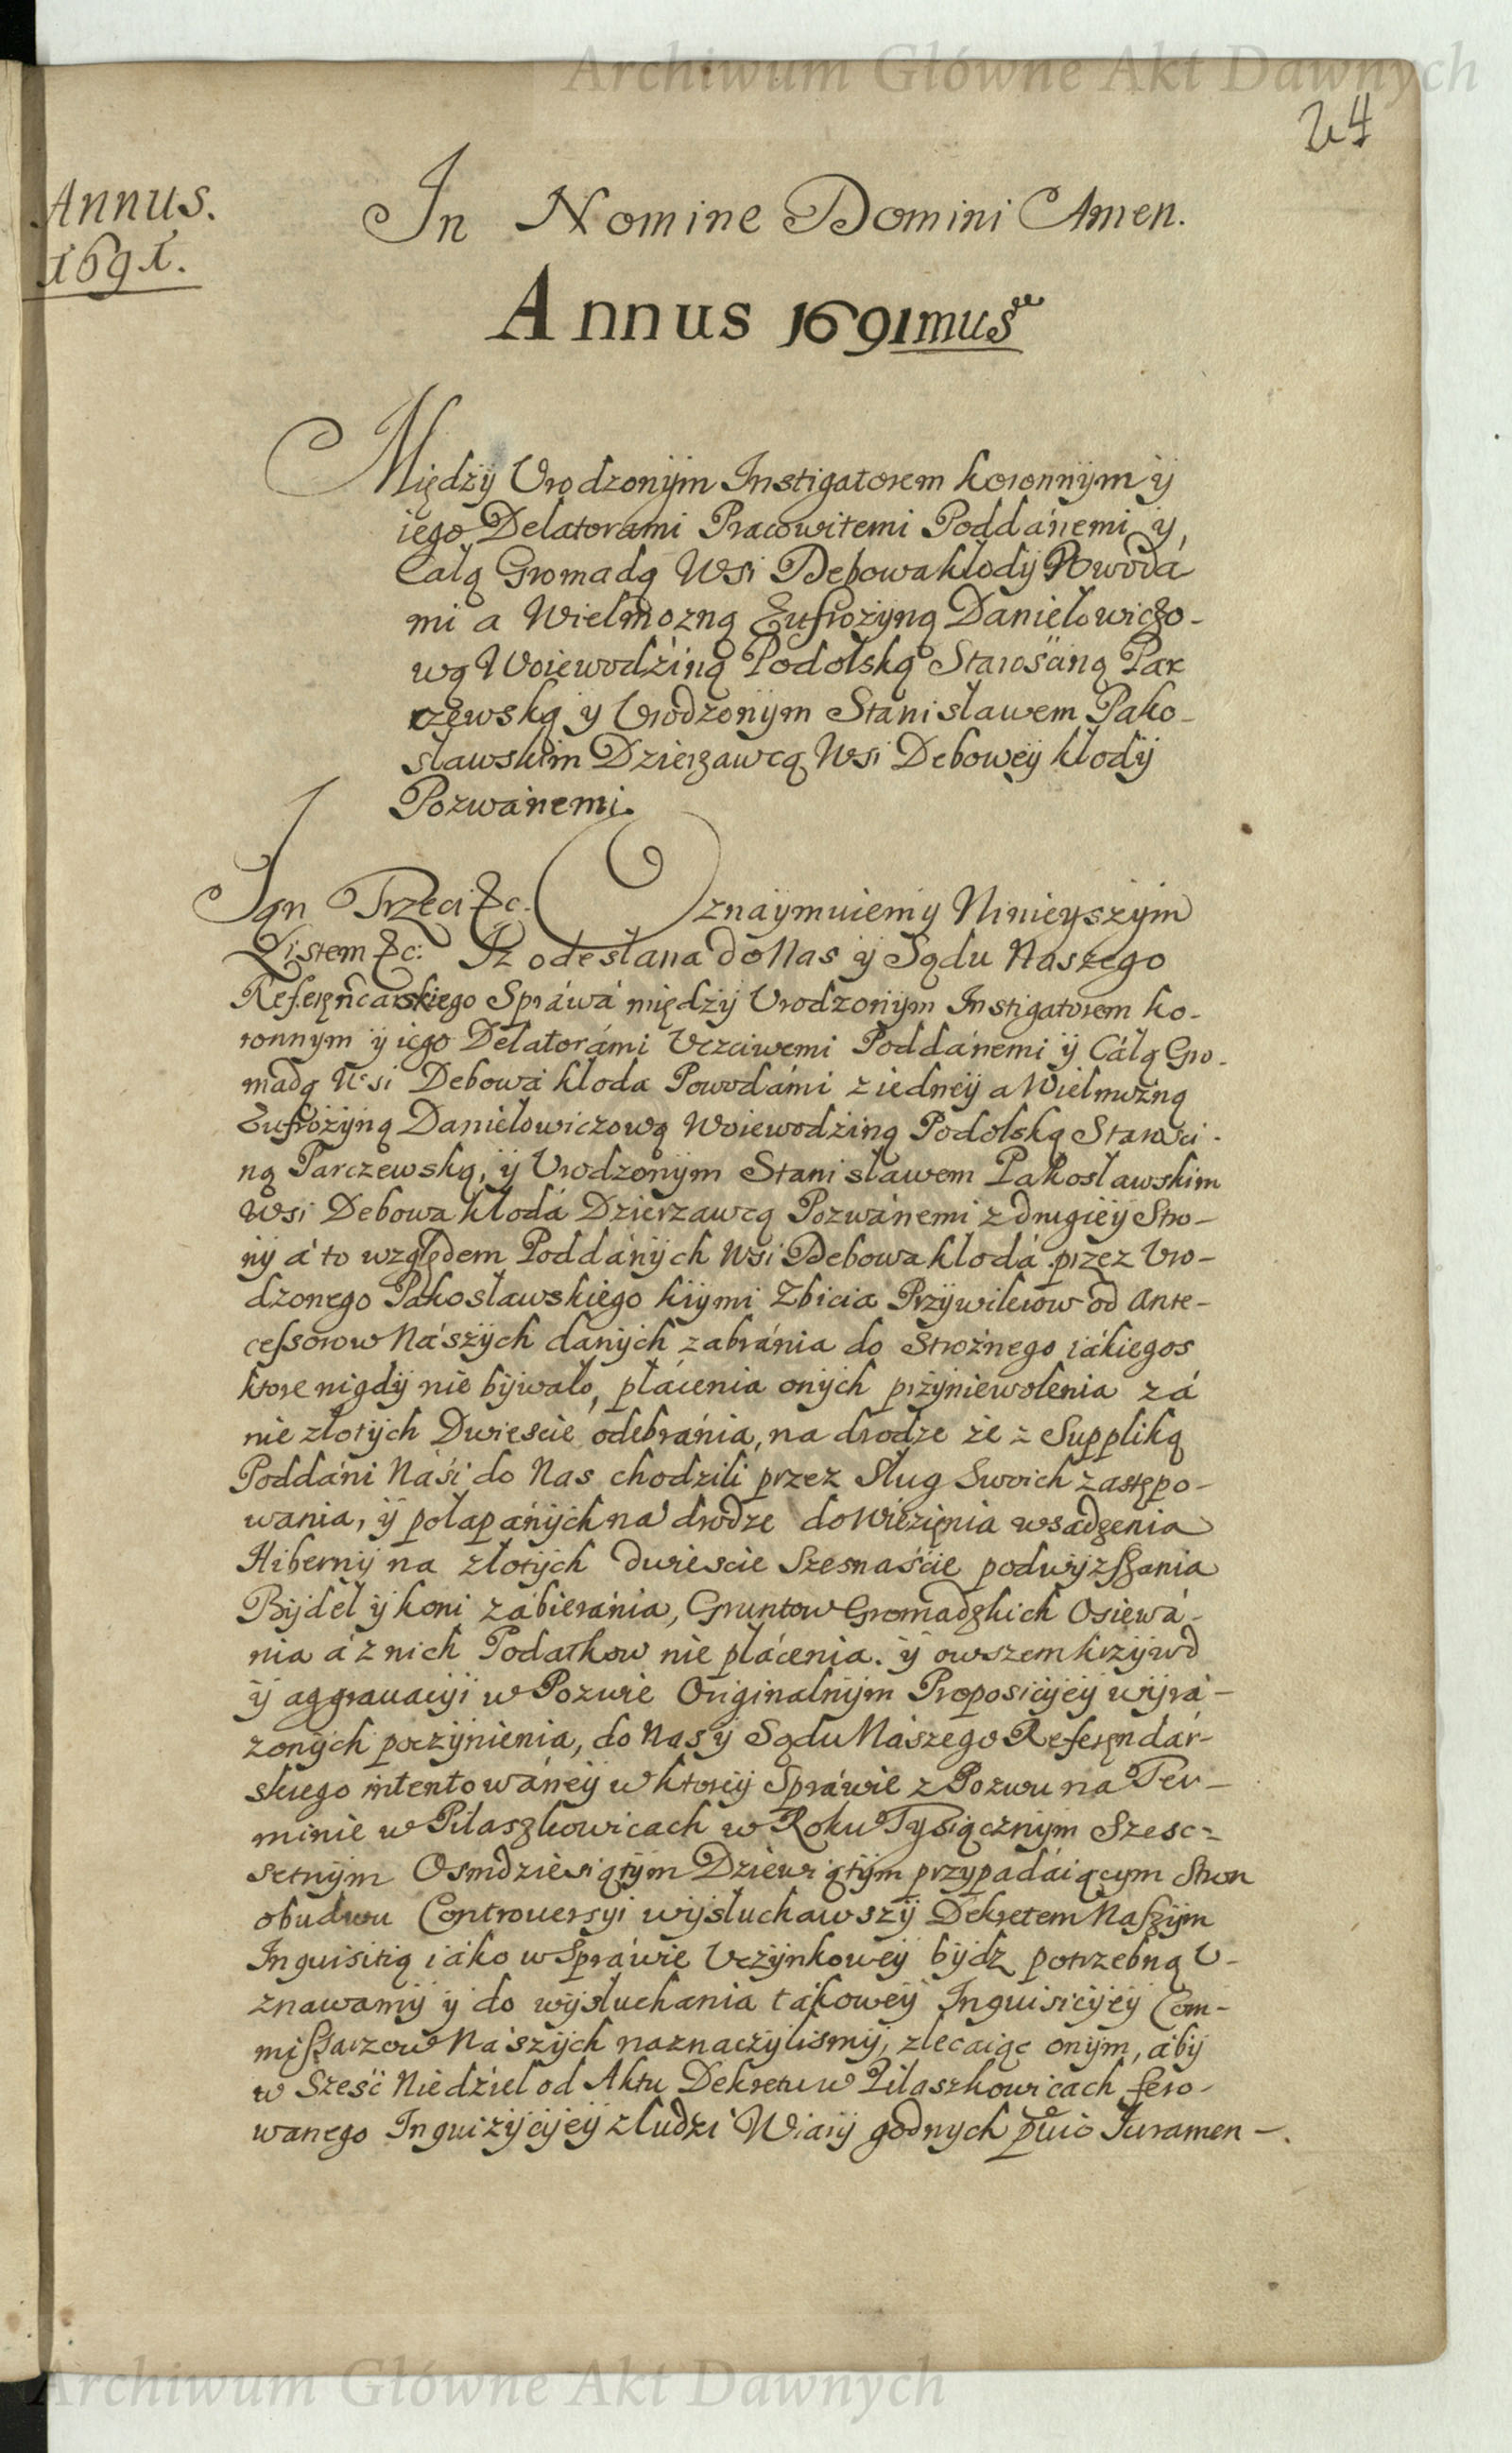 Archiwum Główne Akt Dawnych
24
Annus.
1691.
In Nomine Domini Amen.
Annus 1691mus
Między Vrodzonÿm Instigatorem koronnÿm ÿ
iego Delatorami Pracowitemi Poddánemi y,
Całą Gromadą Wsi Debowakłodÿ Powodá
mi a Wielmozną Eufrozÿną Daniełowiczo-
wą Woiewodźiną Podolską Starośćiną Par
czewską y Vrodzonÿm Stanisławem Pako-
sławskim Dzierzawcą Wsi Debowey kłodÿ
Pozwánemi.
Jan Trzeci &c. Oznaymuiemy Ninieyszÿm
Listem &c: Iz odesłana do Nas ÿ Sądu Naszego
Referęncarskiego Spráwá międzÿ Vrodzonÿm Instigatorem ko-
ronnym ÿ iego Delatorámi Vczciwemi Poddánemi ÿ Cáłą Gro-
madą Wsi Debowa kłoda Powodámi z iedneÿ a Wielmożną
Eufrożÿną Daniełowiczową Woiewodżiną Podolską Starości-
ną Parczewską, ÿ Vrodzonÿm Stanisławem Pakosławskim
Wsi Debowa kłodá Dzierzawcą Pozwánemi z drugieÿ Stro-
nÿ á to względem Poddánÿch Wsi Debowa kłodá przez Vro-
dzonego Pakosławskiego kiymi Zbicia Przÿwileiow od Ante-
cessorow Nászÿch danÿch zabránia do Strożnego iákiegos
ktore nigdÿ nie bÿwało, płácenia onÿch przÿniewolenia zá
nie złotÿch Dwiescie odebránia, na drodze że z Suppliką
Poddáni Náśi do Nas chodzili przez Sług Swoich zastępo-
wania, ÿ połapánÿch na drodze do Więzięnia wsadzenia
Hibernÿ na złotÿch dwiescie Szesnaście podwÿzszania
Bÿdeł ÿ koni zábieránia, Gruntow Gromadzkich Osiewá-
nia á z nich Podatkow nie płácenia. ÿ owszem krzÿwd
ÿ aggrauacÿi w Pozwie Originalnÿm Proposicÿeÿ wÿrá-
zonÿch poczÿnienia, do Nas ÿ Sądu Nászego Referęndár-
skiego intentowáneÿ w ktoreÿ Spráwie z Pozwu na Ter-
minie w Pilaszkowicach w Roku Tysiącznÿm Szesc=
setnÿm Osmdziesiątÿm Dziewiątÿm przypadáiącym Stron
obudwu Controuersyi wÿsłuchawszÿ Dekretem Naszÿm
Inquisitią iáko w Spráwie Vczÿnkoweÿ bÿdz potrzebną V-
znawamÿ ÿ do wÿsłuchania tákoweÿ Inquisicÿeÿ Com-
missarzow Nászÿch naznaczÿlismÿ, zlecaiąc onÿm, ábÿ
w Sześć Niedziel od Aktu Dekretu w Pilaszkowicach fero-
wanego Inquiżÿcÿeÿ z ludzi Wiarÿ godnych Juramen-
Archiwum Główne Akt Dawnych